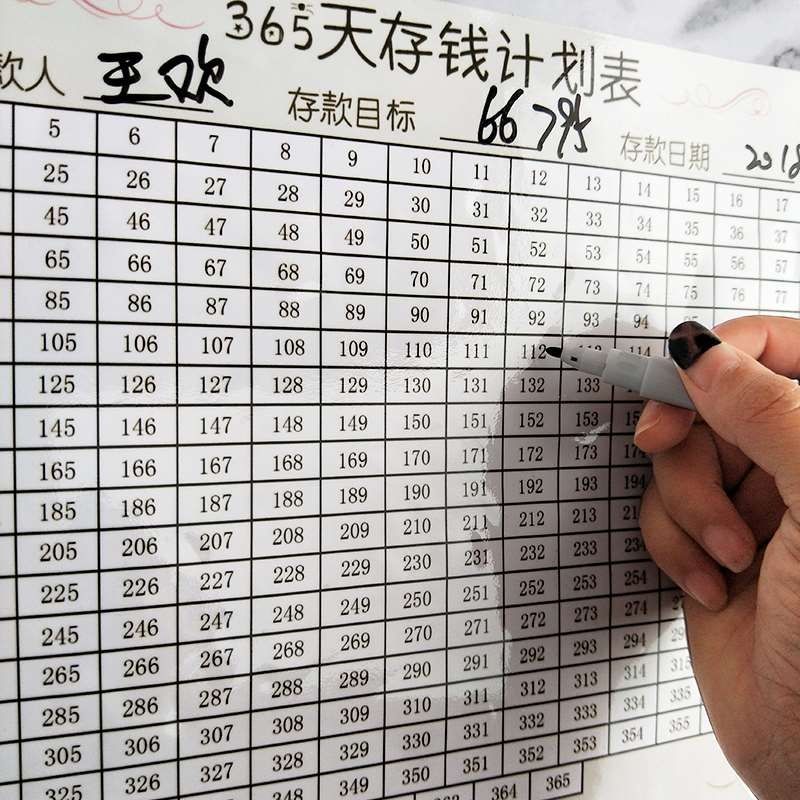 365天存钱计划表
款人 王欢 存款目标 66795 存款日期 2018
5 6 7 8 9 10 11 12 13 14 15 16 17
25 26 27 28 29 30 31 32 33 34 35 36 37
45 46 47 48 49 50 51 52 53 54 55 56 57
65 66 67 68 69 70 71 72 73 74 75 76 77
85 86 87 88 89 90 91 92 93 94 95
105 106 107 108 109 110 111 112 113 114
125 126 127 128 129 130 131 132 133
145 146 147 148 149 150 151 152 153
165 166 167 168 169 170 171 172 173
185 186 187 188 189 190 191 192 193 194
205 206 207 208 209 210 211 212 213
225 226 227 228 229 230 231 232 233 234
245 246 247 248 249 250 251 252 253 254
265 266 267 268 269 270 271 272 273 274
285 286 287 288 289 290 291 292 293 294
305 306 307 308 309 310 311 312 313 314 315
325 326 327 328 329 330 331 332 333 334 335
347 348 349 350 351 352 353 354 355
363 364 365